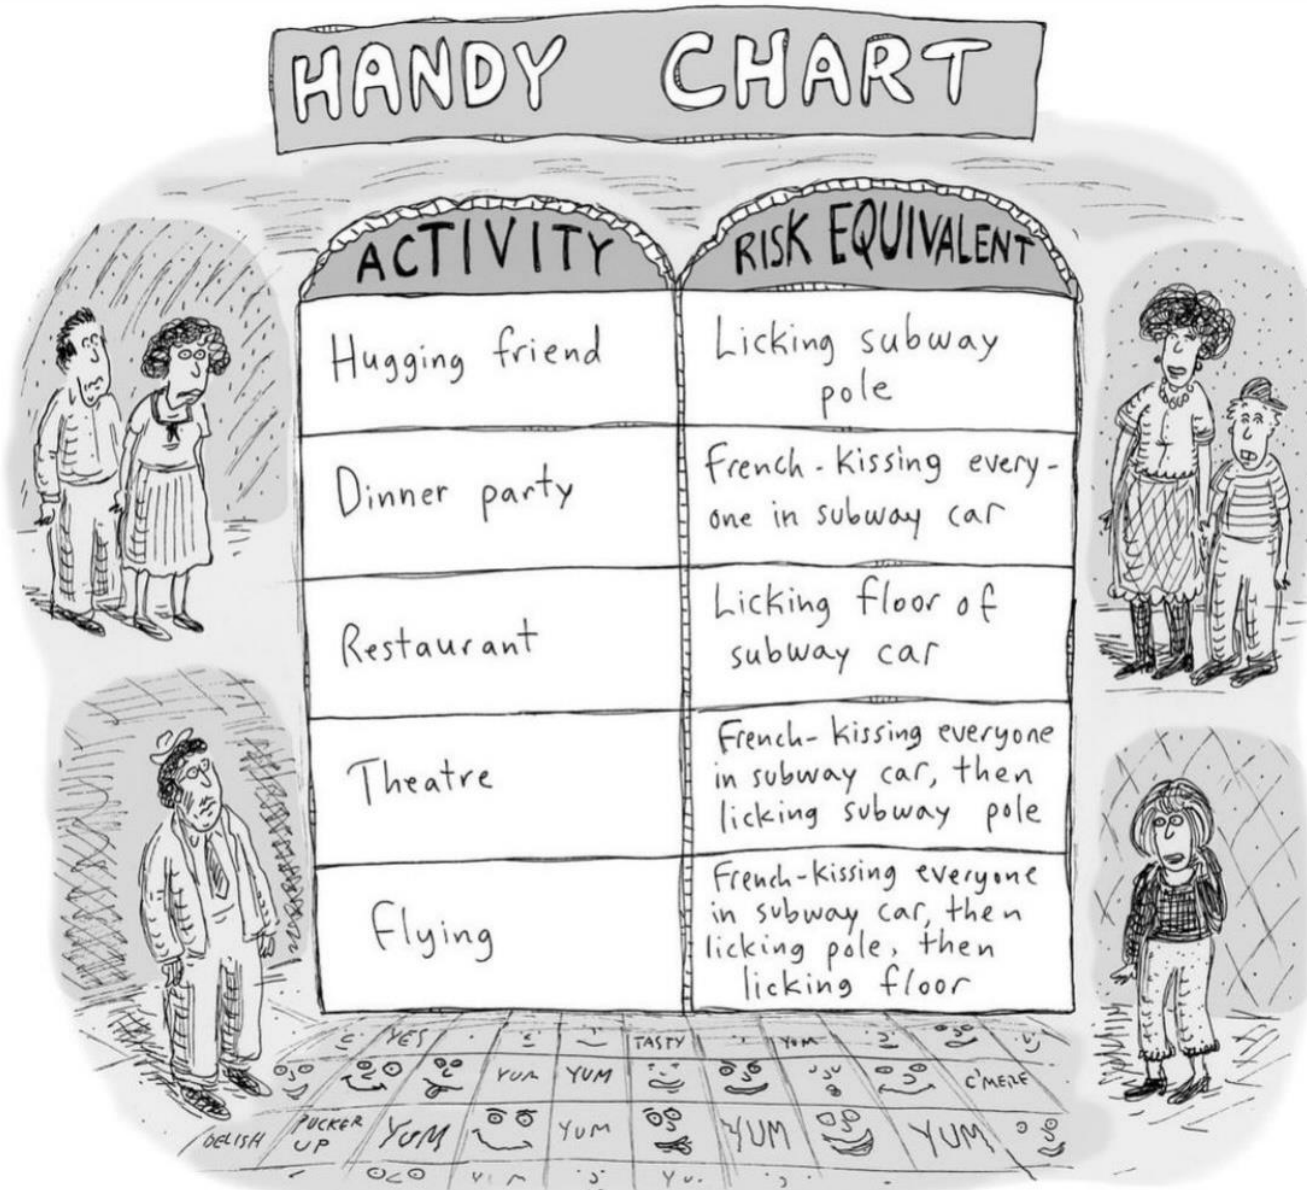 HANDY CHART
ACTIVITY
RISK EQUIVALENT
Hugging friend
Licking subway
pole
Dinner party
French-kissing every-
one in subway car
Restaurant
Licking floor of
subway car
Theatre
French-kissing everyone
in subway car, then
licking subway pole
Flying
French-kissing everyone
in subway car, then
licking pole, then
licking floor
YES TASTY YUM
YUM YUM C'MERE
DELISH PUCKER
UP YUM YUM YUM YUM